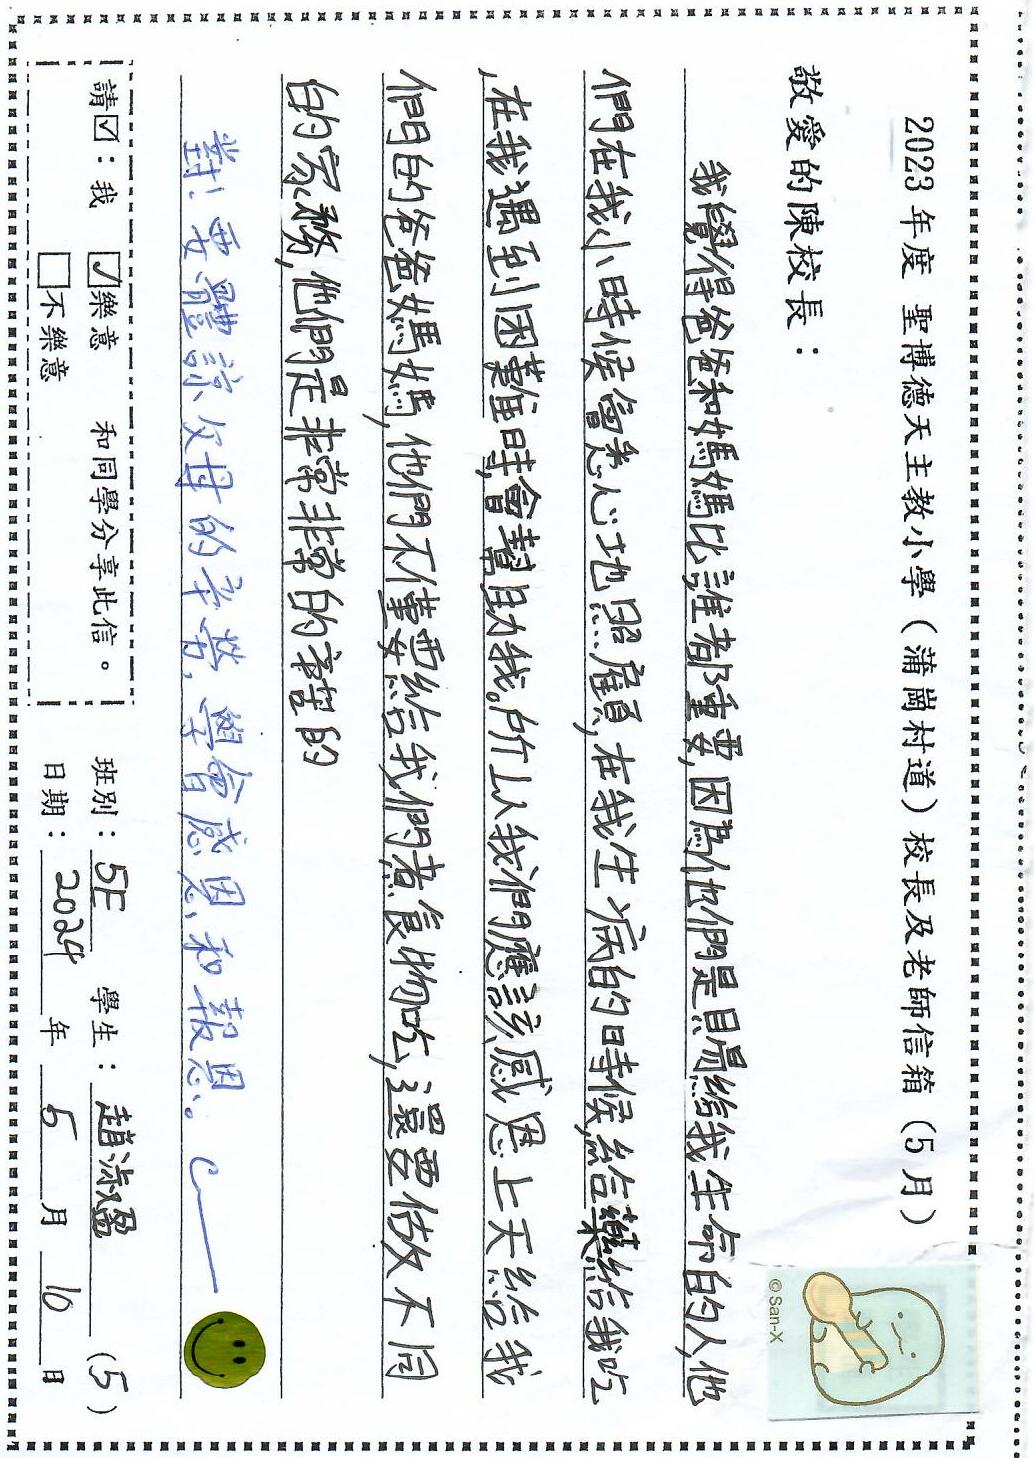 2023 年度 聖博德天主教小學（蒲崗村道）校長及老師信箱（5月）
敬愛的陳校長：
我覺得爸爸和媽媽比誰都重要,因為他們是賜給我生命的人,他
們在我小時候會悉心地照顧,在我生病的時候,給藥給我吃
,在我遇到困難時,會幫助我。所以我們應該感恩上天給我
們的爸爸媽媽,他們不僅要給我們煮食物吃,還要做不同
的家務,他們是非常非常的辛苦的
對! 要體諒父母的辛勞, 學會感恩和報恩。
請☑：我 ☑樂意 和同學分享此信。
☐不樂意
班別：5E 學生：趙淑盈 (5)
日期：2024 年 5 月 10 日
© San-X